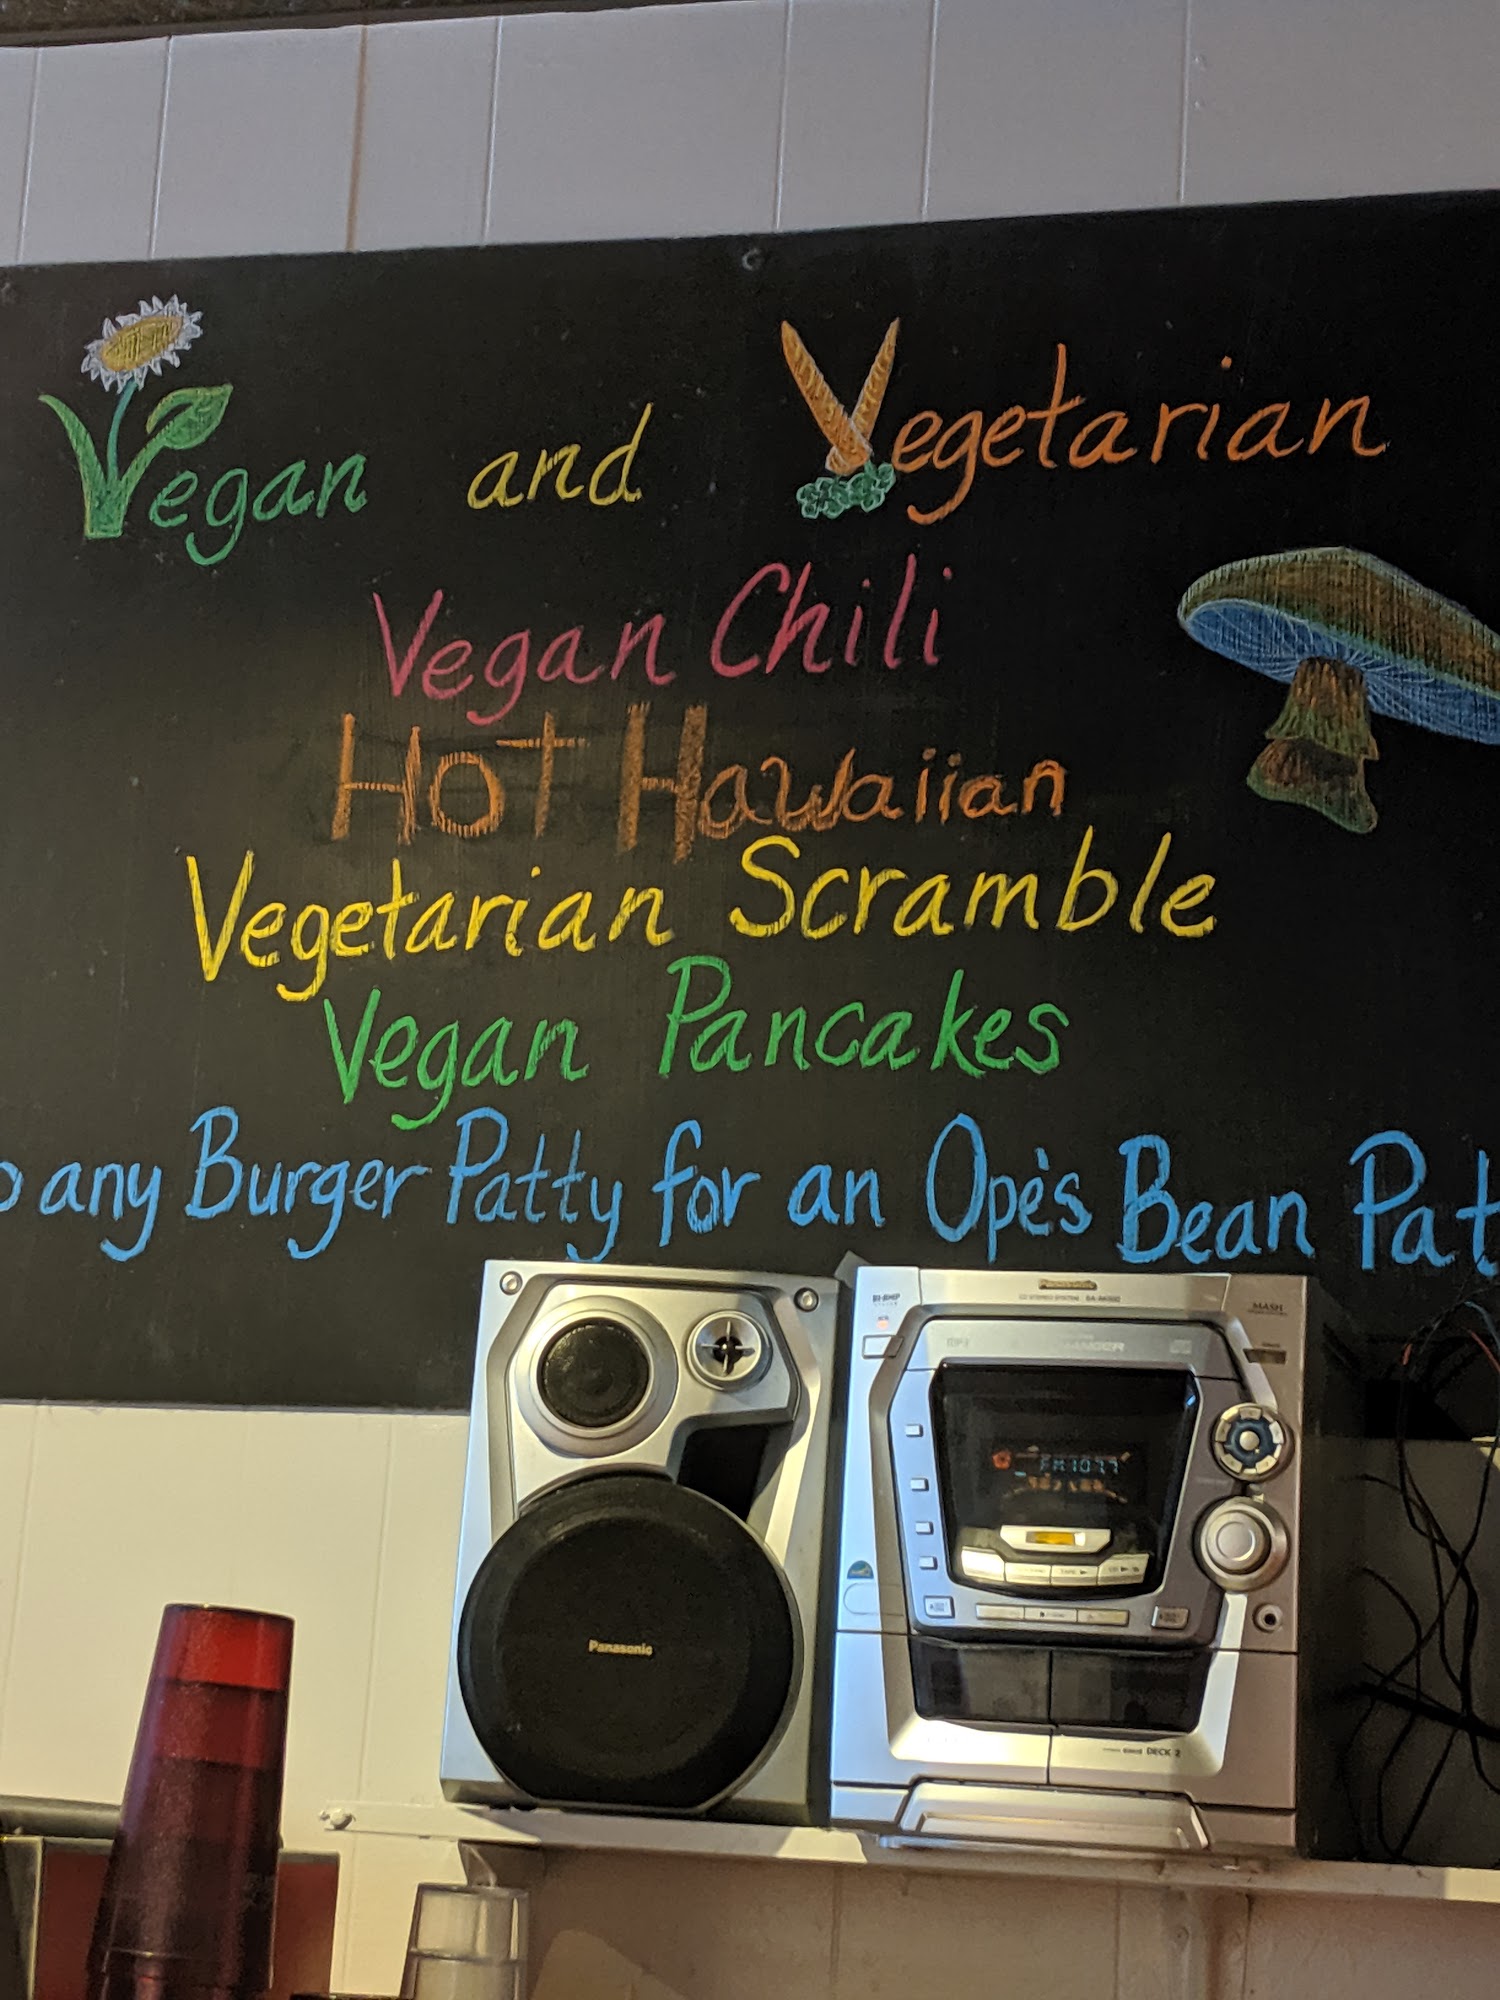 Vegan and Vegetarian
Vegan Chili
HOT Hawaiian
Vegetarian Scramble
Vegan Pancakes
any Burger Patty for an Ope's Bean Pat
Panasonic
MASH
FM 107.7
Panasonic
DECK 2